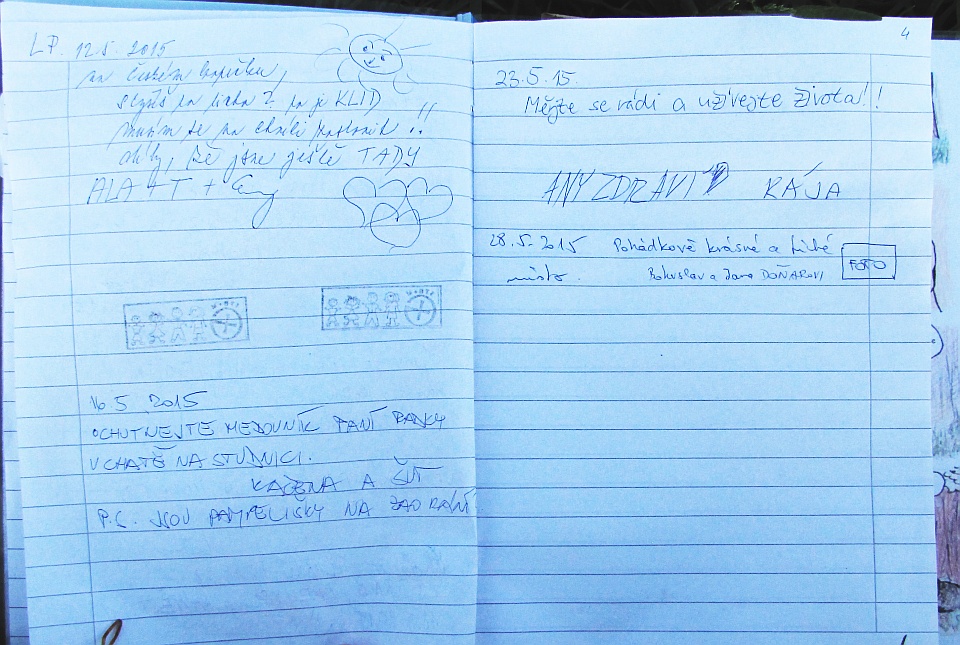 L.P. 12.5. 2015
na čistém kopečku,
slyšíš to ticho? to je KLID
musím se na chvíli !!
díky, že jsme ještě TADY
ALA + T +
16.5 2015
OCHUTNEJTE MEDOVNÍK PANÍ RADKY
V CHATĚ NA STUDNICI.
KAČENA A ŠÍT
P.S. JSOU PAMPELIŠKY NA
4
23.5.15.
Mějte se rádi a užívejte života!!
ANY ZDRAVÍ KÁJA
28.5.2015 Pohádkově krásné a tiché
FOTO
místo. Bohuslav a Jana DOŇAROVI